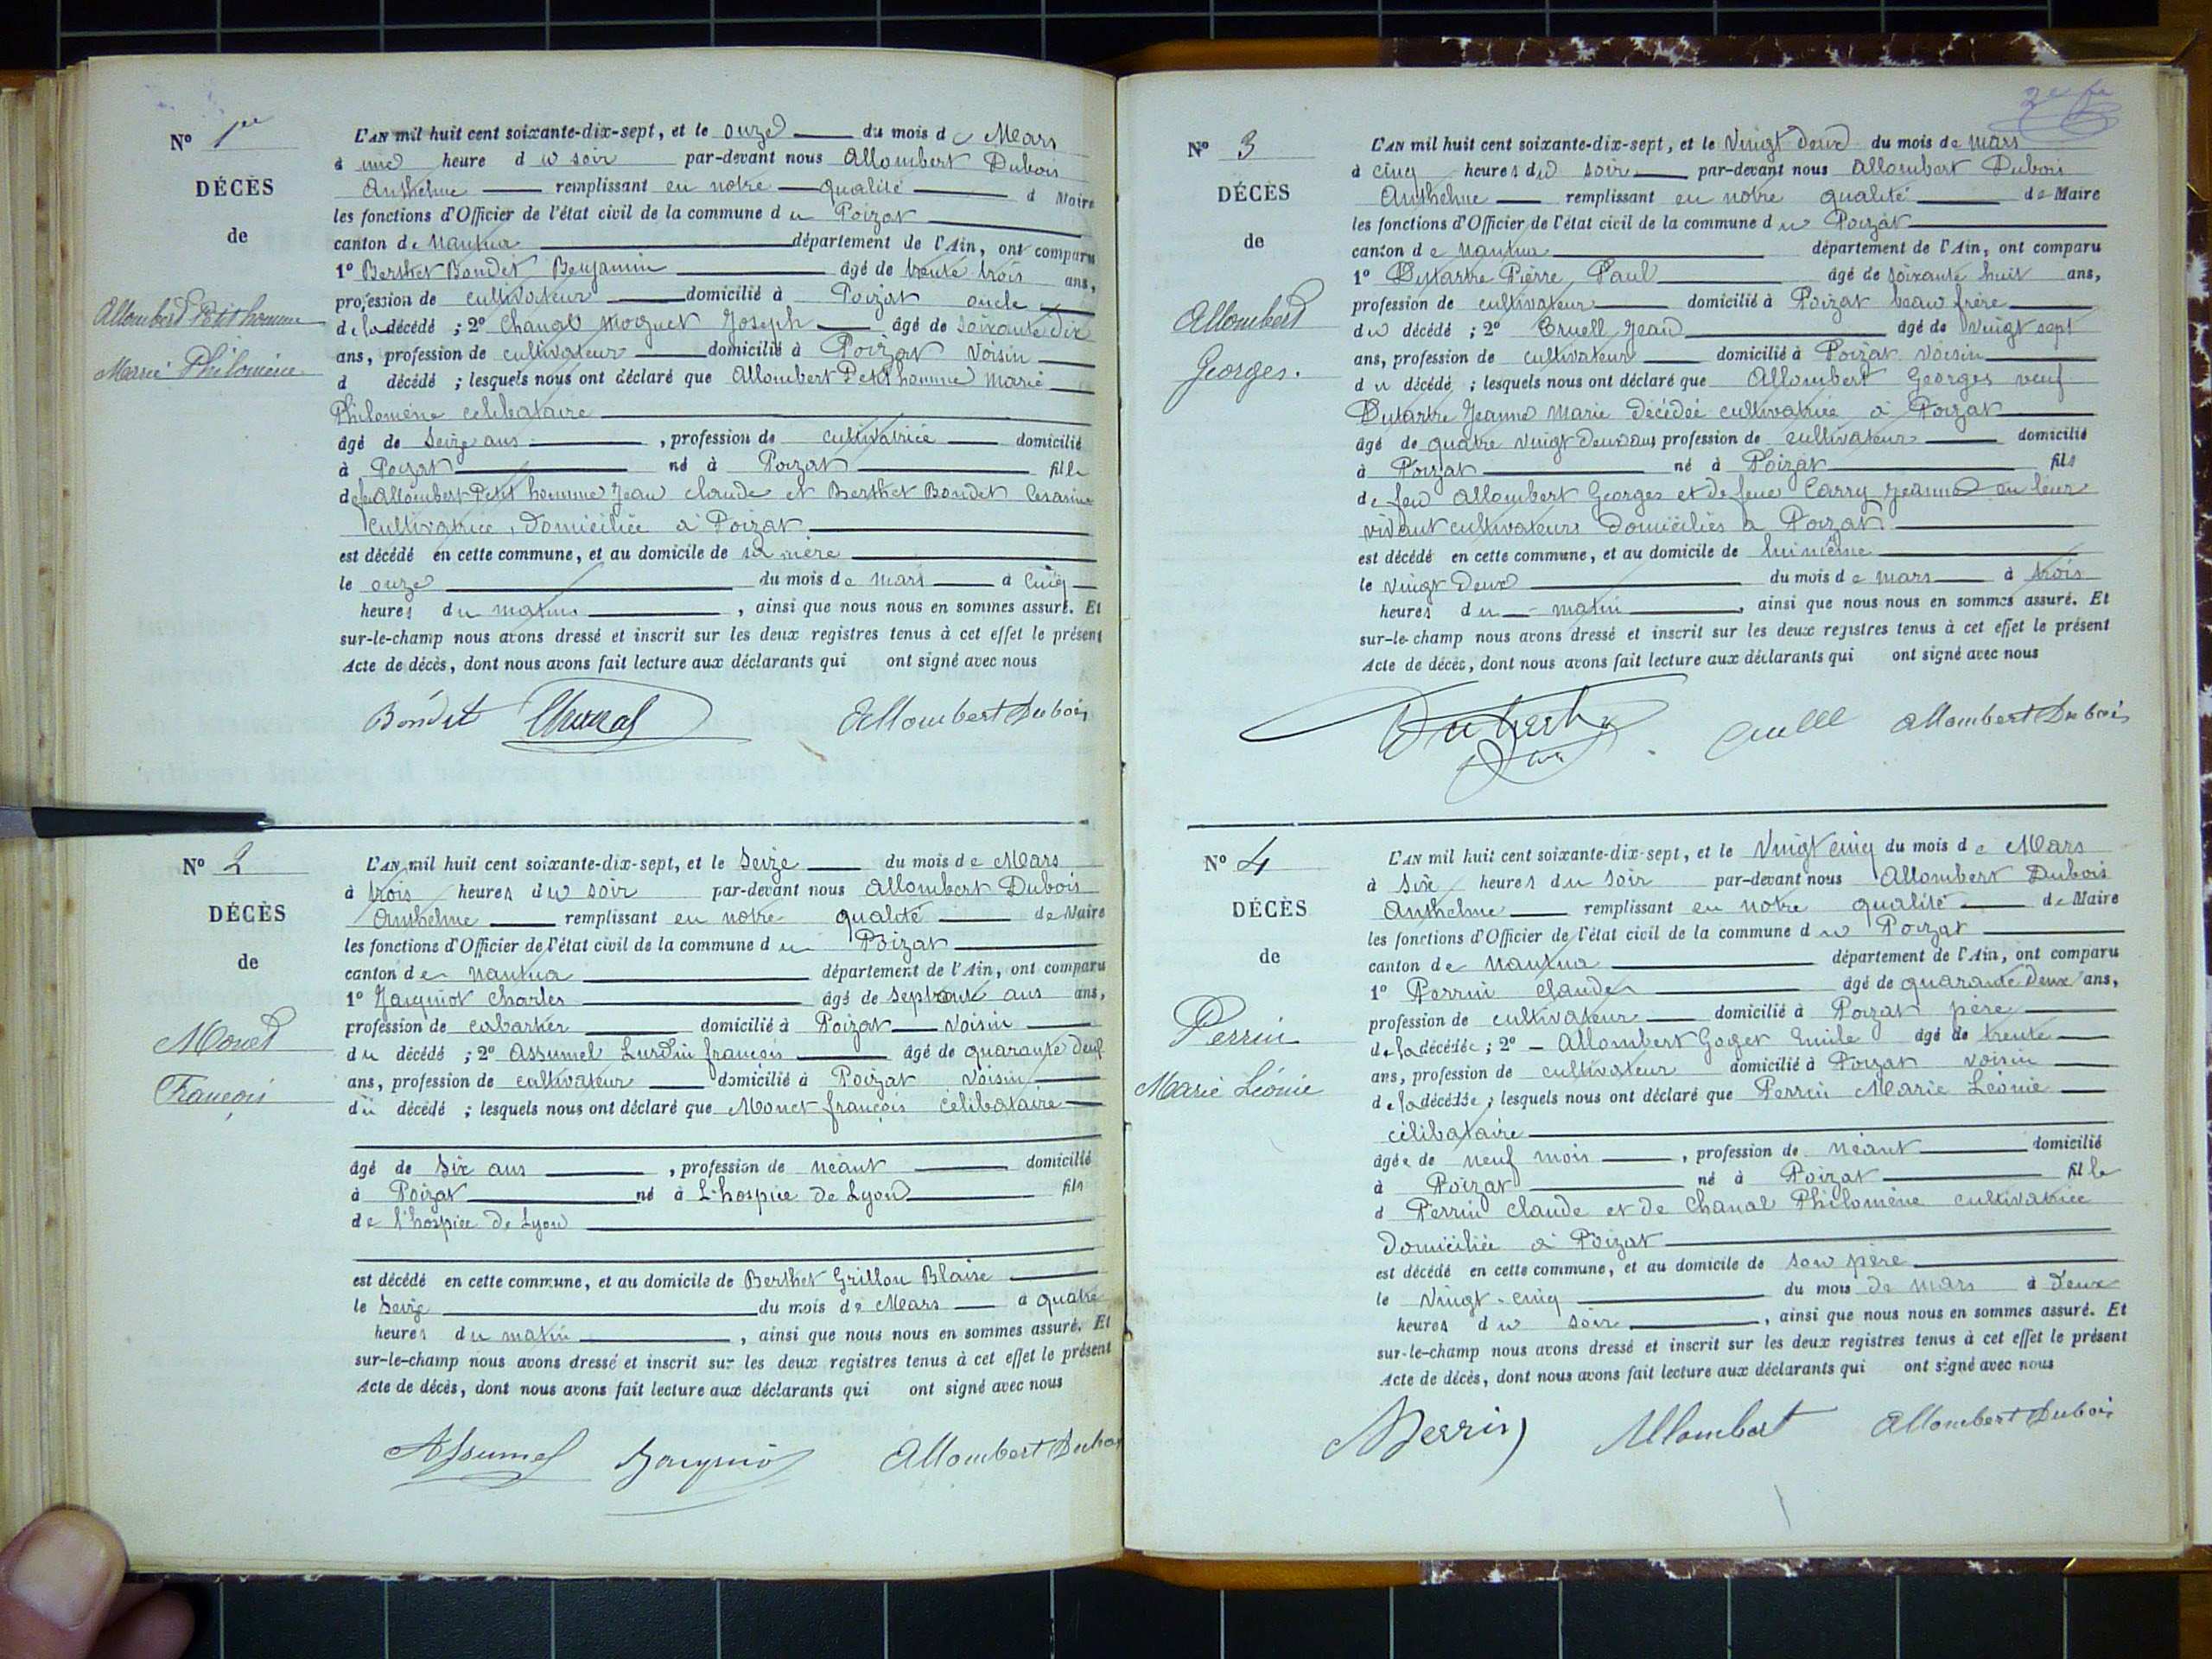 Nº 1er
DÉCÈS
de
Allombert Petit homme
Marie Philomène
L'AN mil huit cent soixante-dix-sept, et le onze du mois de Mars
à une heure du soir par-devant nous Allombert Dubois
Anthelme remplissant en notre qualité d Maire
les fonctions d'Officier de l'état civil de la commune du Poizat
canton de Nantua département de l'Ain, ont comparu
1º Berthet Bondet Benjamin âgé de trente trois ans,
profession de cultivateur domicilié à Poizat oncle
de la décédé ; 2º Joseph âgé de soixante dix
ans, profession de cultivateur domicilié à Poizat Voisin
d décédé ; lesquels nous ont déclaré que Allombert Petit homme Marie
Philomène celibataire
âgé de Seize ans , profession de cultivatrice domicilié
à Poizat né à Poizat fille
de feu Allombert Petit homme Jean claude et Berthet Bondet Cesarine
Cultivatrice, domiciliée à Poizat
est décédé en cette commune, et au domicile de sa mère
le onze du mois de mars à Cinq
heures du matin , ainsi que nous nous en sommes assuré. Et
sur-le-champ nous avons dressé et inscrit sur les deux registres tenus à cet effet le présent
Acte de décès, dont nous avons fait lecture aux déclarants qui ont signé avec nous
Bondet Allombert Dubois
Nº 2
DÉCÈS
de
Monet
François
L'AN mil huit cent soixante-dix-sept, et le Seize du mois de Mars
à trois heures du soir par-devant nous Allombert Dubois
Anthelme remplissant en notre qualité de Maire
les fonctions d'Officier de l'état civil de la commune du Poizat
canton de Nantua département de l'Ain, ont comparu
1º Jarquiot Charles âgé de ans ans,
profession de domicilié à Poizat Voisin
du décédé ; 2º Assumel Lurdin françois âgé de quarante
ans, profession de cultivateur domicilié à Poizat Voisin
du décédé ; lesquels nous ont déclaré que Monet françois célibataire
âgé de Six ans , profession de néant domicilié
à Poizat né à L'hospice de Lyon fils
de l'hospice de Lyon
est décédé en cette commune, et au domicile de Berthet Grillon Blaise
le Seize du mois de Mars à quatre
heures du matin , ainsi que nous nous en sommes assuré. Et
sur-le-champ nous avons dressé et inscrit sur les deux registres tenus à cet effet le présent
Acte de décès, dont nous avons fait lecture aux déclarants qui ont signé avec nous
Assumel Allombert Dubois
Nº 3
DÉCÈS
de
Allombert
Georges.
L'AN mil huit cent soixante-dix-sept, et le Vingt deux du mois de mars
à cinq heures du soir par-devant nous Allombert Dubois
Anthelme remplissant en notre qualité de Maire
les fonctions d'Officier de l'état civil de la commune du Poizat
canton de Nantua département de l'Ain, ont comparu
1º Dutartre Pierre Paul âgé de soixante huit ans,
profession de cultivateur domicilié à Poizat beau frère
du décédé ; 2º Cruell Jean âgé de vingt sept
ans, profession de cultivateur domicilié à Poizat voisin
du décédé ; lesquels nous ont déclaré que Allombert Georges veuf
Dutartre Jeanne Marie décédée cultivatrice à Poizat
âgé de quatre vingt deux ans, profession de cultivateur domicilié
à Poizat né à Poizat fils
de feu Allombert Georges et de feue Carry Jeanne en leur
vivant cultivateurs Domiciliés à Poizat.
est décédé en cette commune, et au domicile de lui même
le vingt deux du mois de mars à trois
heures du matin , ainsi que nous nous en sommes assuré. Et
sur-le-champ nous avons dressé et inscrit sur les deux registres tenus à cet effet le présent
Acte de décès, dont nous avons fait lecture aux déclarants qui ont signé avec nous
Allombert Dubois
Nº 4
DÉCÈS
de
Perrin
Marie Léonie
L'AN mil huit cent soixante-dix-sept, et le Vingt cinq du mois de Mars
à Six heures du soir par-devant nous Allombert Dubois
Anthelme remplissant en notre qualité de Maire
les fonctions d'Officier de l'état civil de la commune du Poizat
canton de Nantua département de l'Ain, ont comparu
1º Perrin claude âgé de quarante deux ans,
profession de cultivateur domicilié à Poizat père
de la décédée ; 2º Allombert Goget Emile âgé de trente
ans, profession de cultivateur domicilié à Poizat voisin
de la décédée ; lesquels nous ont déclaré que Perrin Marie Léonie
célibataire
âgée de neuf mois , profession de néant domicilié
à Poizat né à Poizat fille
d Perrin claude et de Chanal Philomène cultivatrice
domiciliée à Poizat
est décédé en cette commune, et au domicile de son père
le Vingt-cinq du mois de mars à deux
heures du soir , ainsi que nous nous en sommes assuré. Et
sur-le-champ nous avons dressé et inscrit sur les deux registres tenus à cet effet le présent
Acte de décès, dont nous avons fait lecture aux déclarants qui ont signé avec nous
Perrin Allombert Allombert Dubois